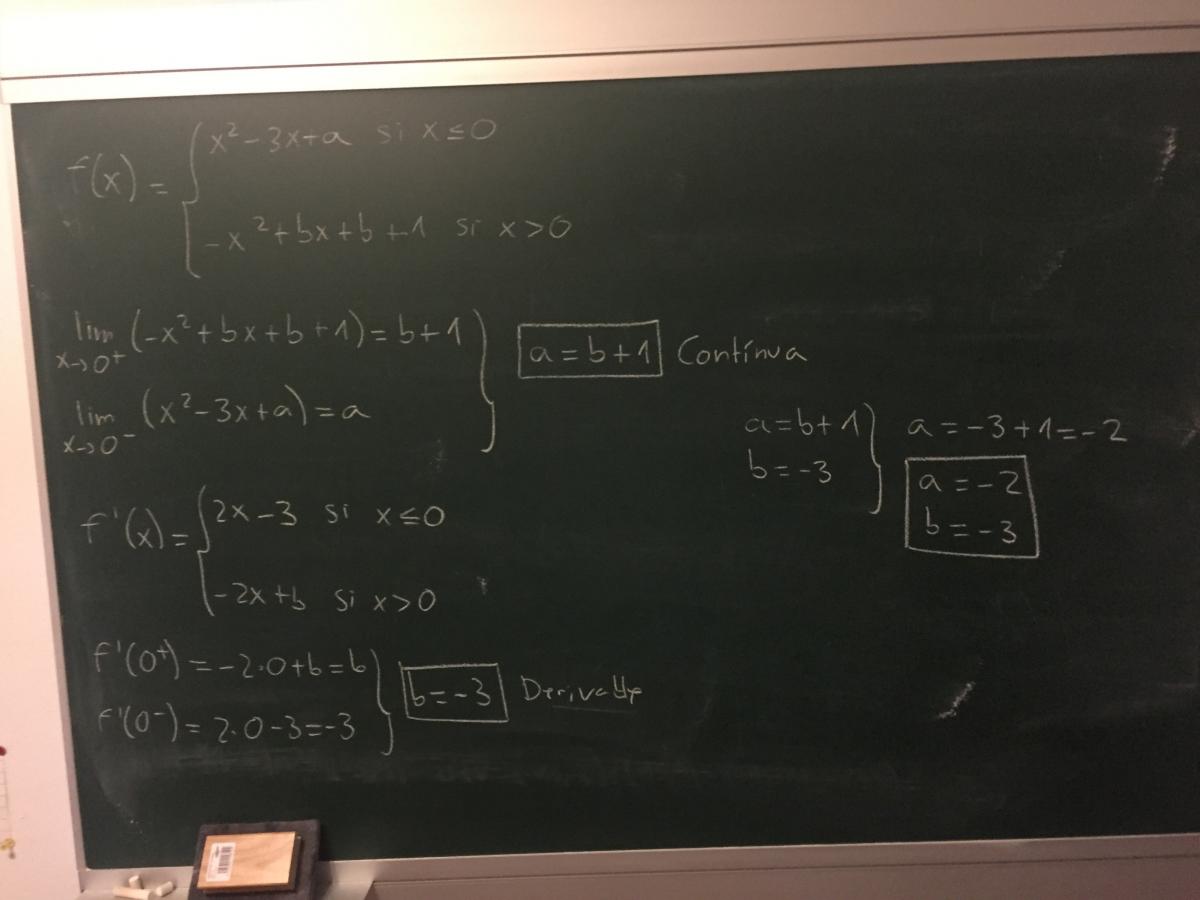 f(x) = { x² - 3x + a si x ≤ 0
-x² + bx + b + 1 si x > 0
lim x→0⁺ (-x² + bx + b + 1) = b + 1
lim x→0⁻ (x² - 3x + a) = a
a = b + 1 Contínua
f'(x) = { 2x - 3 si x ≤ 0
-2x + b si x > 0
f'(0⁺) = -2·0 + b = b
f'(0⁻) = 2·0 - 3 = -3
b = -3
a = b + 1
b = -3
a = -3 + 1 = -2
a = -2
b = -3